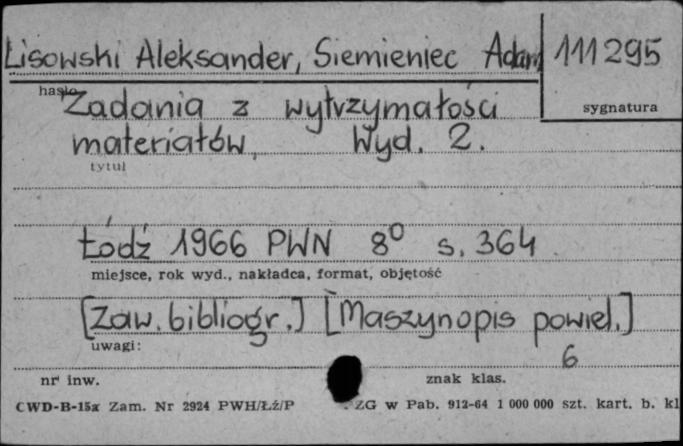 Lisowski Aleksander, Siemieniec Adam 111295
hasło sygnatura
Zadania z wytrzymałości
materiałów, Wyd. 2.
tytuł
Łódź 1966 PWN 8° s. 364
miejsce, rok wyd., nakładca, format, objętość
[Zaw. bibliogr.] [Maszynopis powiel.]
uwagi:
6
nr inw. znak klas.
CWD-B-15a Zam. Nr 2924 PWH/Łź/P ZG w Pab. 912-64 1 000 000 szt. kart. b. kl